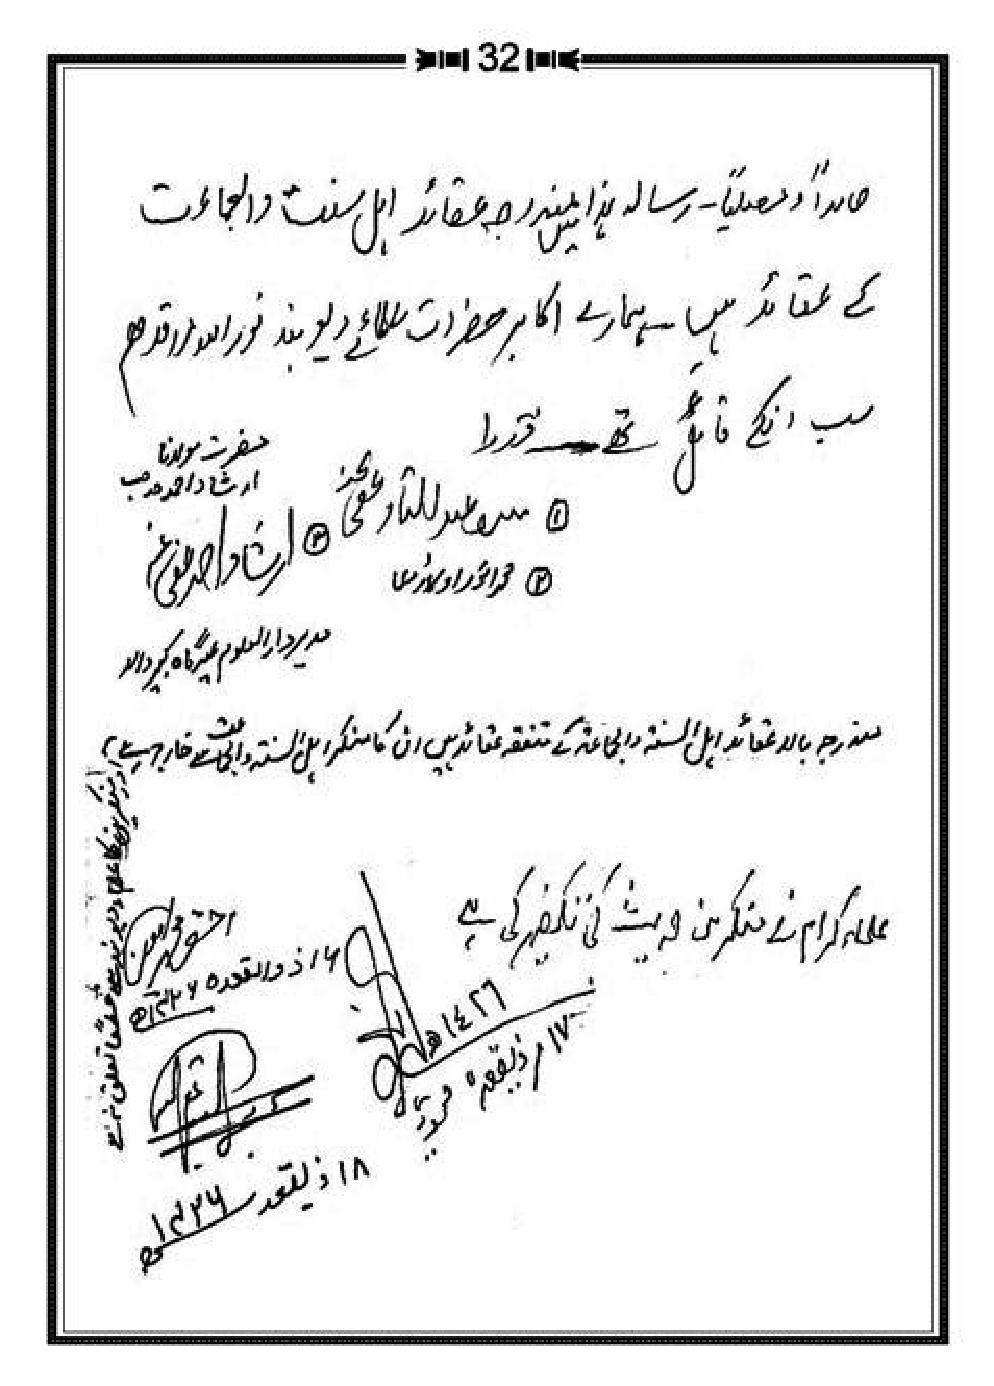 32
حامداً و مصلیاً۔ رسالہ ہذا میں مندرجہ عقائد اہل سنت والجماعت
کے عقائد ہیں۔ ہمارے اکابر حضرات علمائے دیوبند نور اللہ مراقدھم
سب انکے قائل تھے۔ فقط
حضرت مولانا
ارشاد احمد صاحب
① عبدالستار عفی عنہ
③ ارشاد احمد عفی عنہ
② محمد انور اوکاڑوی
مدیر دارالعلوم عیدگاہ کبیر والا
مندرجہ بالا عقائد اہل السنۃ والجماعۃ کے متفقہ عقائد ہیں ان کا منکر اہل السنۃ والجماعت سے خارج ہے
علماء کرام نے منکرین حدیث کی تکفیر کی ہے
احقر محمد
۱۶ ذوالقعدہ ۱۴۲۶ھ
۱۴۲۶ھ
۱۷ ذیقعدہ
۱۸ ذیقعد ۱۴۲۶ھ